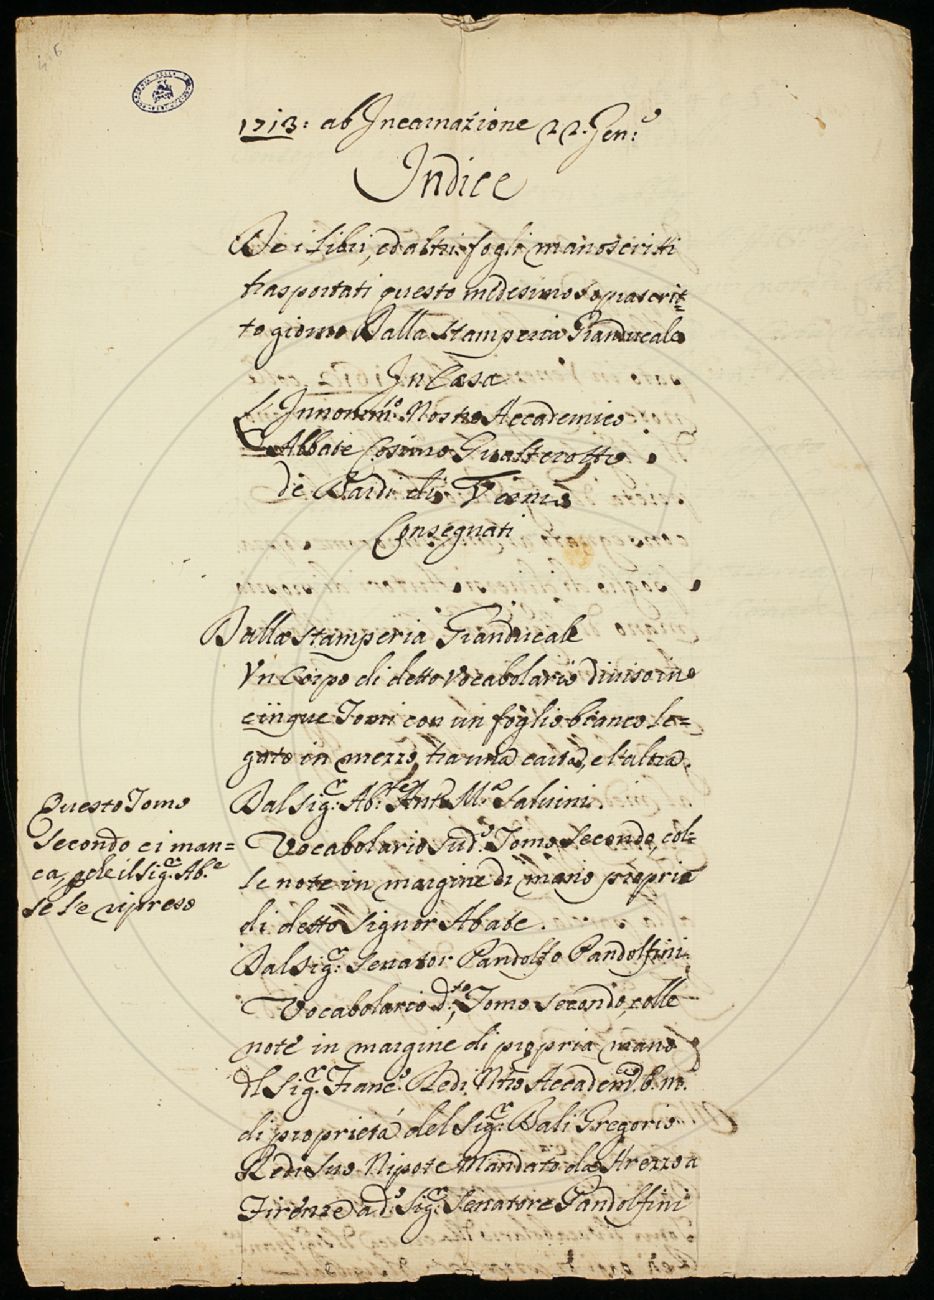 1713: ab Incarnazione 22. Gen:º
Indice
De i libri, ed altri fogli manoscritti
trasportati questo medesimo soprascrit=
to giorno Dalla Stamperia Granducale
In Casa
L'Innom:º Nostro Accademico
Abbate Cosimo Gualterotto
de Bardi di Vernio
Consegnati
Dalla Stamperia Granducale
Un Corpo di detto vocabolario diviso in
cinque Tomi con un foglio bianco le=
gato in mezzo, tra una carta, e l'altra.
Dal Sig:r Ab:te Ant:º M:ª Salvini
Vocabolario sud:º Tomo secondo, col=
le note in margine di mano propria
di detto Signor Abate.
Questo Tomo
secondo ci man=
ca, che il Sig:r Ab:e
se le ripreso
Dal Sig:r Senator Pandolfo Pandolfini
Vocabolario d:to, Tomo secondo, colle
note in margine di propria mano
del Sig:r Franc:º Redi Nrõ Accadem:º b. m.
di proprietá del Sig:r Bali Gregorio
Redi suo Nipote Mandato da Arezzo a
Firenze a d:º Sig:r Senatore Pandolfini